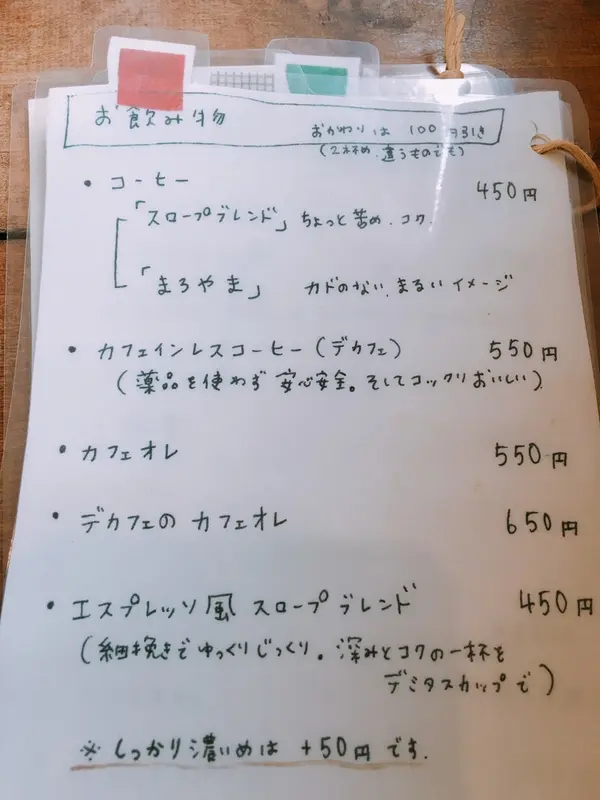 お飲み物
おかわりは 100円引き
(2杯め、違うものでも)
・コーヒー 450円
「スロープブレンド」ちょっと苦め、コク。
「まろやま」 カドのない、まるいイメージ
・カフェインレスコーヒー(デカフェ) 550円
(薬品を使わず 安心安全。そしてコックリおいしい)
・カフェオレ 550円
・デカフェの カフェオレ 650円
・エスプレッソ風 スロープブレンド 450円
(細挽きで ゆっくりじっくり。深みとコクの一杯を
デミタスカップで)
※しっかり濃いめは +50円です。